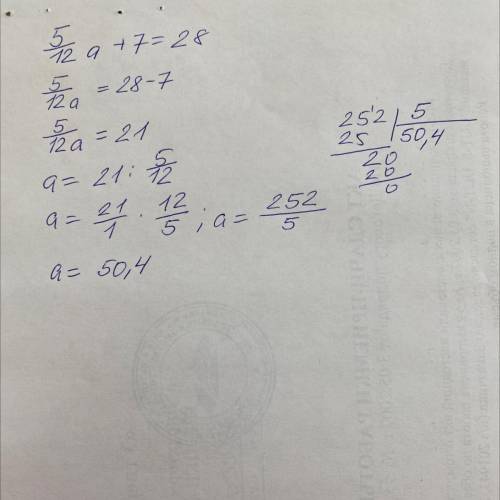 5/12 a + 7 = 28
5/12 a = 28 - 7
5/12 a = 21
a = 21 : 5/12
a = 21/1 · 12/5 ; a = 252/5
a = 50,4
252 | 5
25 | 50,4
20
20
0